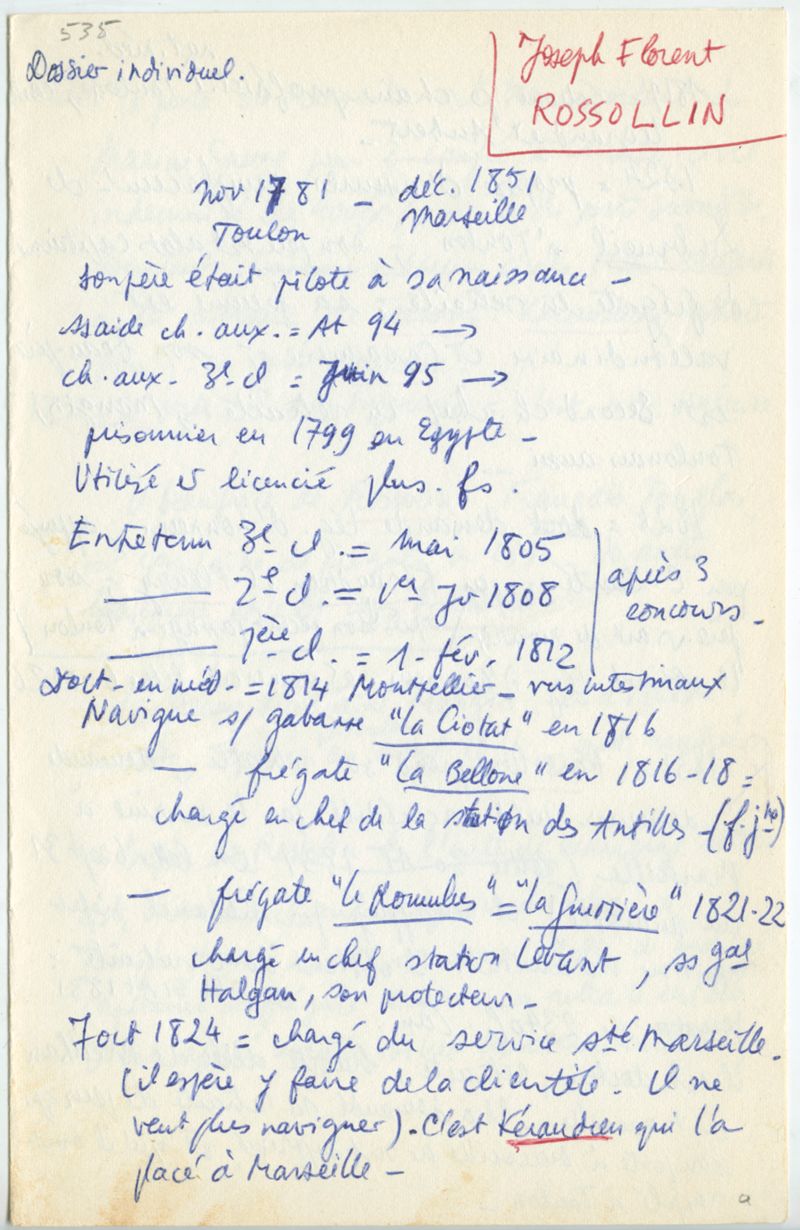 535
Dossier individuel.
Joseph Florent
ROSSOLLIN
nov 1781 – déc. 1851
Toulon Marseille
son père était pilote à sa naissance –
ssaide ch. aux. = At 94 →
ch. aux. 3e cl = Juin 95 →
prisonnier en 1799 en Egypte –
Utilisé et licencié plus. fs.
Entretenu 3e cl. = mai 1805
——— 2e cl. = 1er Jr 1808
——— 1ère cl. = 1. fév. 1812
après 3
concours –
Doct. en méd. = 1814 Montpellier – vers intestinaux
Navigue s/ gabarre "la Ciotat" en 1816
— frégate "La Bellone" en 1816-18 =
chargé en chef de la station des Antilles – (f.j)
— frégate "le Romulus" = "la Guerrière" 1821-22
chargé en chef station Levant, ss gal
Halgan, son protecteur –
7 oct 1824 = chargé du service sté Marseille.
(il espère y faire de la clientèle. Il ne
veut plus naviguer). C'est Kéraudren qui l'a
placé à Marseille –
a